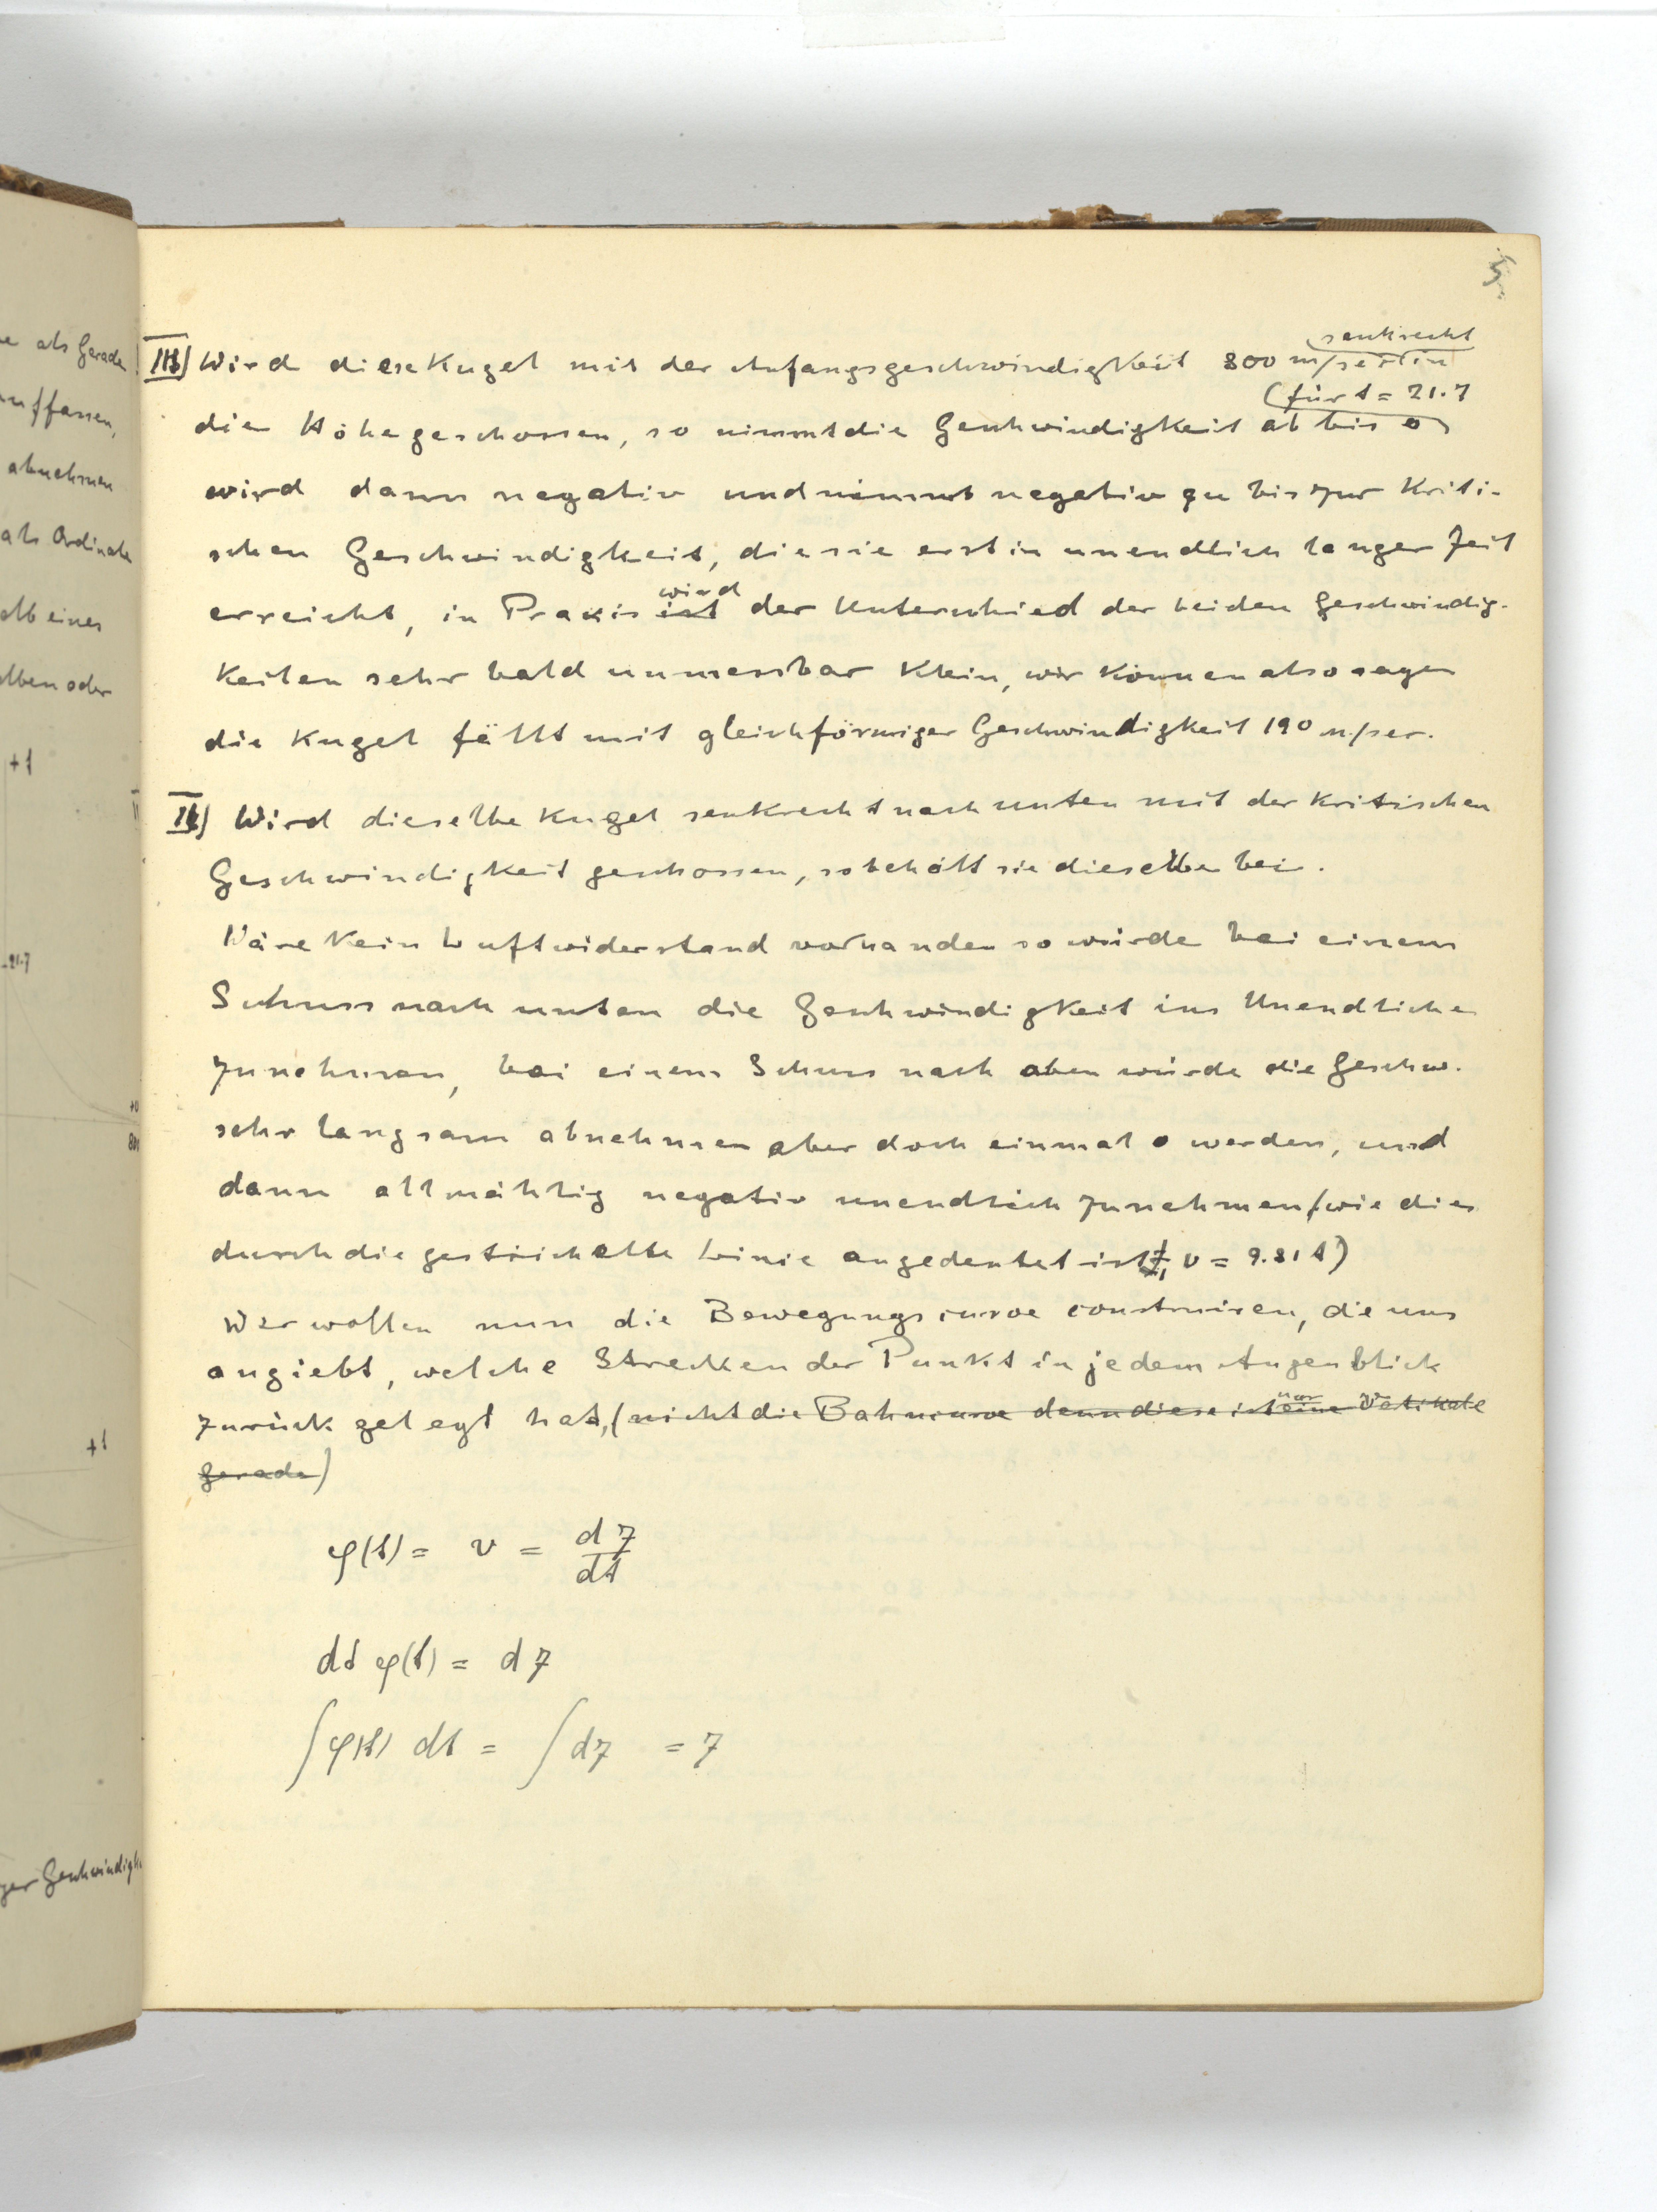 e als Gerade
auffassen,
abnehmen
als Ordinate
alb eines
alben oder
+1
-21.7
+0
800
+1
ger Geschwindigk
5
senkrecht
III) Wird diese Kugel mit der Anfangsgeschwindigkeit 800 m/sec in
(für t = 21.7
die Höhe geschossen, so nimmt die Geschwindigkeit ab bis 0)
wird dann negativ und nimmt negativ zu bis zur kriti-
schen Geschwindigkeit, die sie erst in unendlich langer Zeit
wird
erreicht, in Praxis ist der Unterschied der beiden Geschwindig-
keiten sehr bald unmessbar klein, wir können also sagen
die Kugel fällt mit gleichförmiger Geschwindigkeit 190 m/sec.
II) Wird dieselbe Kugel senkrecht nach unten mit der kritischen
Geschwindigkeit geschossen, so behält sie dieselbe bei.
Wäre kein Luftwiderstand vorhanden so würde bei einem
Schuss nach unten die Geschwindigkeit ins Unendliche
zunehmen, bei einem Schuss nach oben würde die Geschw.
sehr langsam abnehmen aber doch einmal 0 werden, und
dann allmählig negativ unendlich zunehmen (wie dies
durch die gestrichelte Linie angedeutet ist, v = 9.81 t)
Wir wollen nun die Bewegungscurve construiren, die uns
angiebt, welche Strecken der Punkt in jedem Augenblick
nur
zurück gelegt hat, (nicht die Bahncurve denn diese ist eine Vertikale
Gerade)
φ(t) = v = dz/dt
dt φ(t) = dz
∫φ(t) dt = ∫dz = z